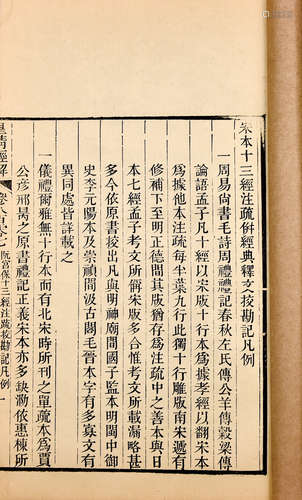 宋本十三經注疏併經典釋文挍勘記凡例
一周易尚書毛詩周禮禮記春秋左氏傳公羊傳穀梁傳
論語孟子凡十經以宋版十行本為據孝經以翻宋本
為據他本注疏每半葉九行此獨十行雕版南宋遞有
修補下至明正德間其版猶存為注疏中之善本與日
本七經孟子考文所偁宋版多合惟考文所載漏略甚
多今依原書挍出凡與明神廟間國子監本明閩中御
史李元陽本及崇禎間汲古閣毛晉本字有多寡文有
異同處皆詳載之
一儀禮爾雅無十行本而有北宋時所刊之單疏本為賈
公彥邢昺之原書禮記正義宋本亦多缺泐依惠棟所
皇清經解
卷八百六七
阮宮保十三經注疏挍勘記凡例
一